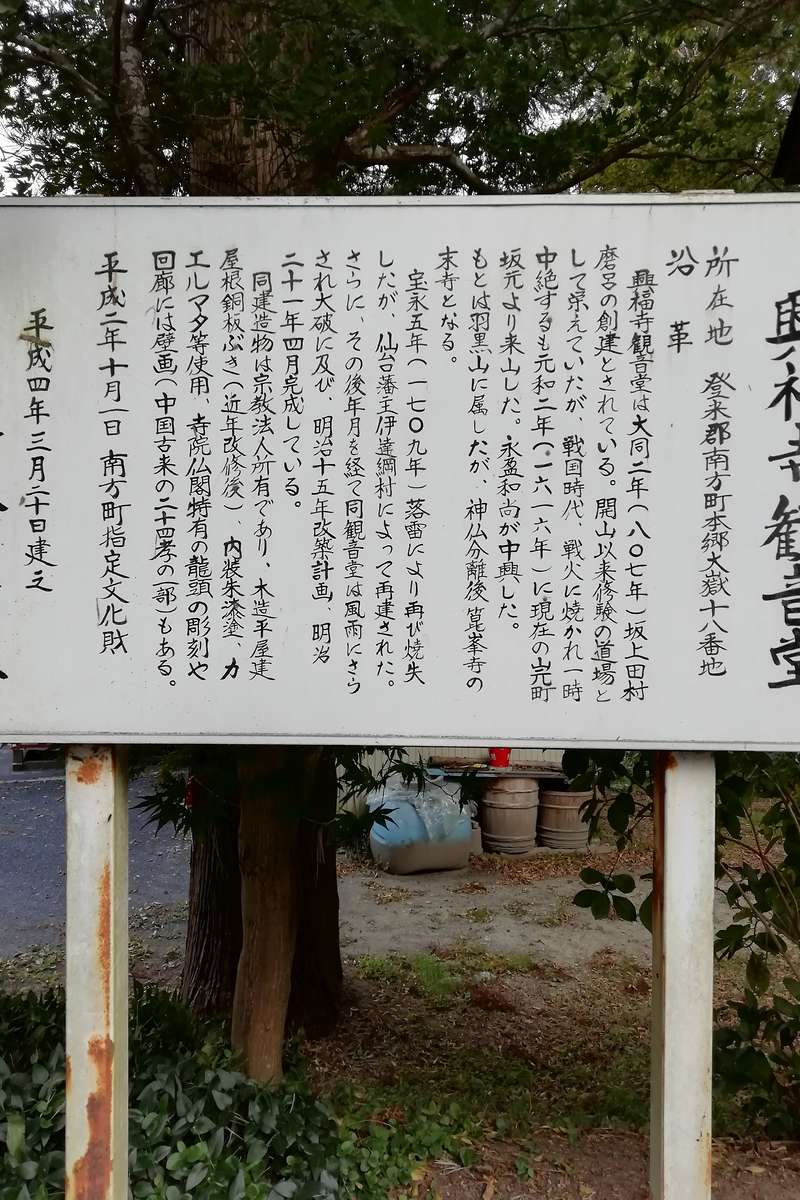 興福寺観音堂
所在地 登米郡南方町本郷大嶽十八番地
沿革
興福寺観音堂は大同二年(八〇七年)坂上田村
磨呂の創建とされている。開山以来修験の道場と
して栄えていたが、戦国時代、戦火に焼かれ一時
中絶するも元和二年(一六一六年)に現在の山元町
坂元より来山した。永盈和尚が中興した。
もとは羽黒山に属したが、神仏分離後箟峯寺の
末寺となる。
宝永五年(一七〇九年)落雷により再び焼失
したが、仙台藩主伊達綱村によって再建された。
さらに、その後年月を経て同観音堂は風雨にさら
され大破に及び、明治十五年改築計画、明治
二十一年四月完成している。
同建造物は宗教法人所有であり、木造平屋建
屋根銅板ぶき(近年改修後)、内装朱漆塗、カ
エルマタ等使用、寺院仏閣特有の龍頭の彫刻や
回廊には壁画(中国古来の二十四孝の一部)もある。
平成二年十月一日 南方町指定文化財
平成四年三月二十日建之